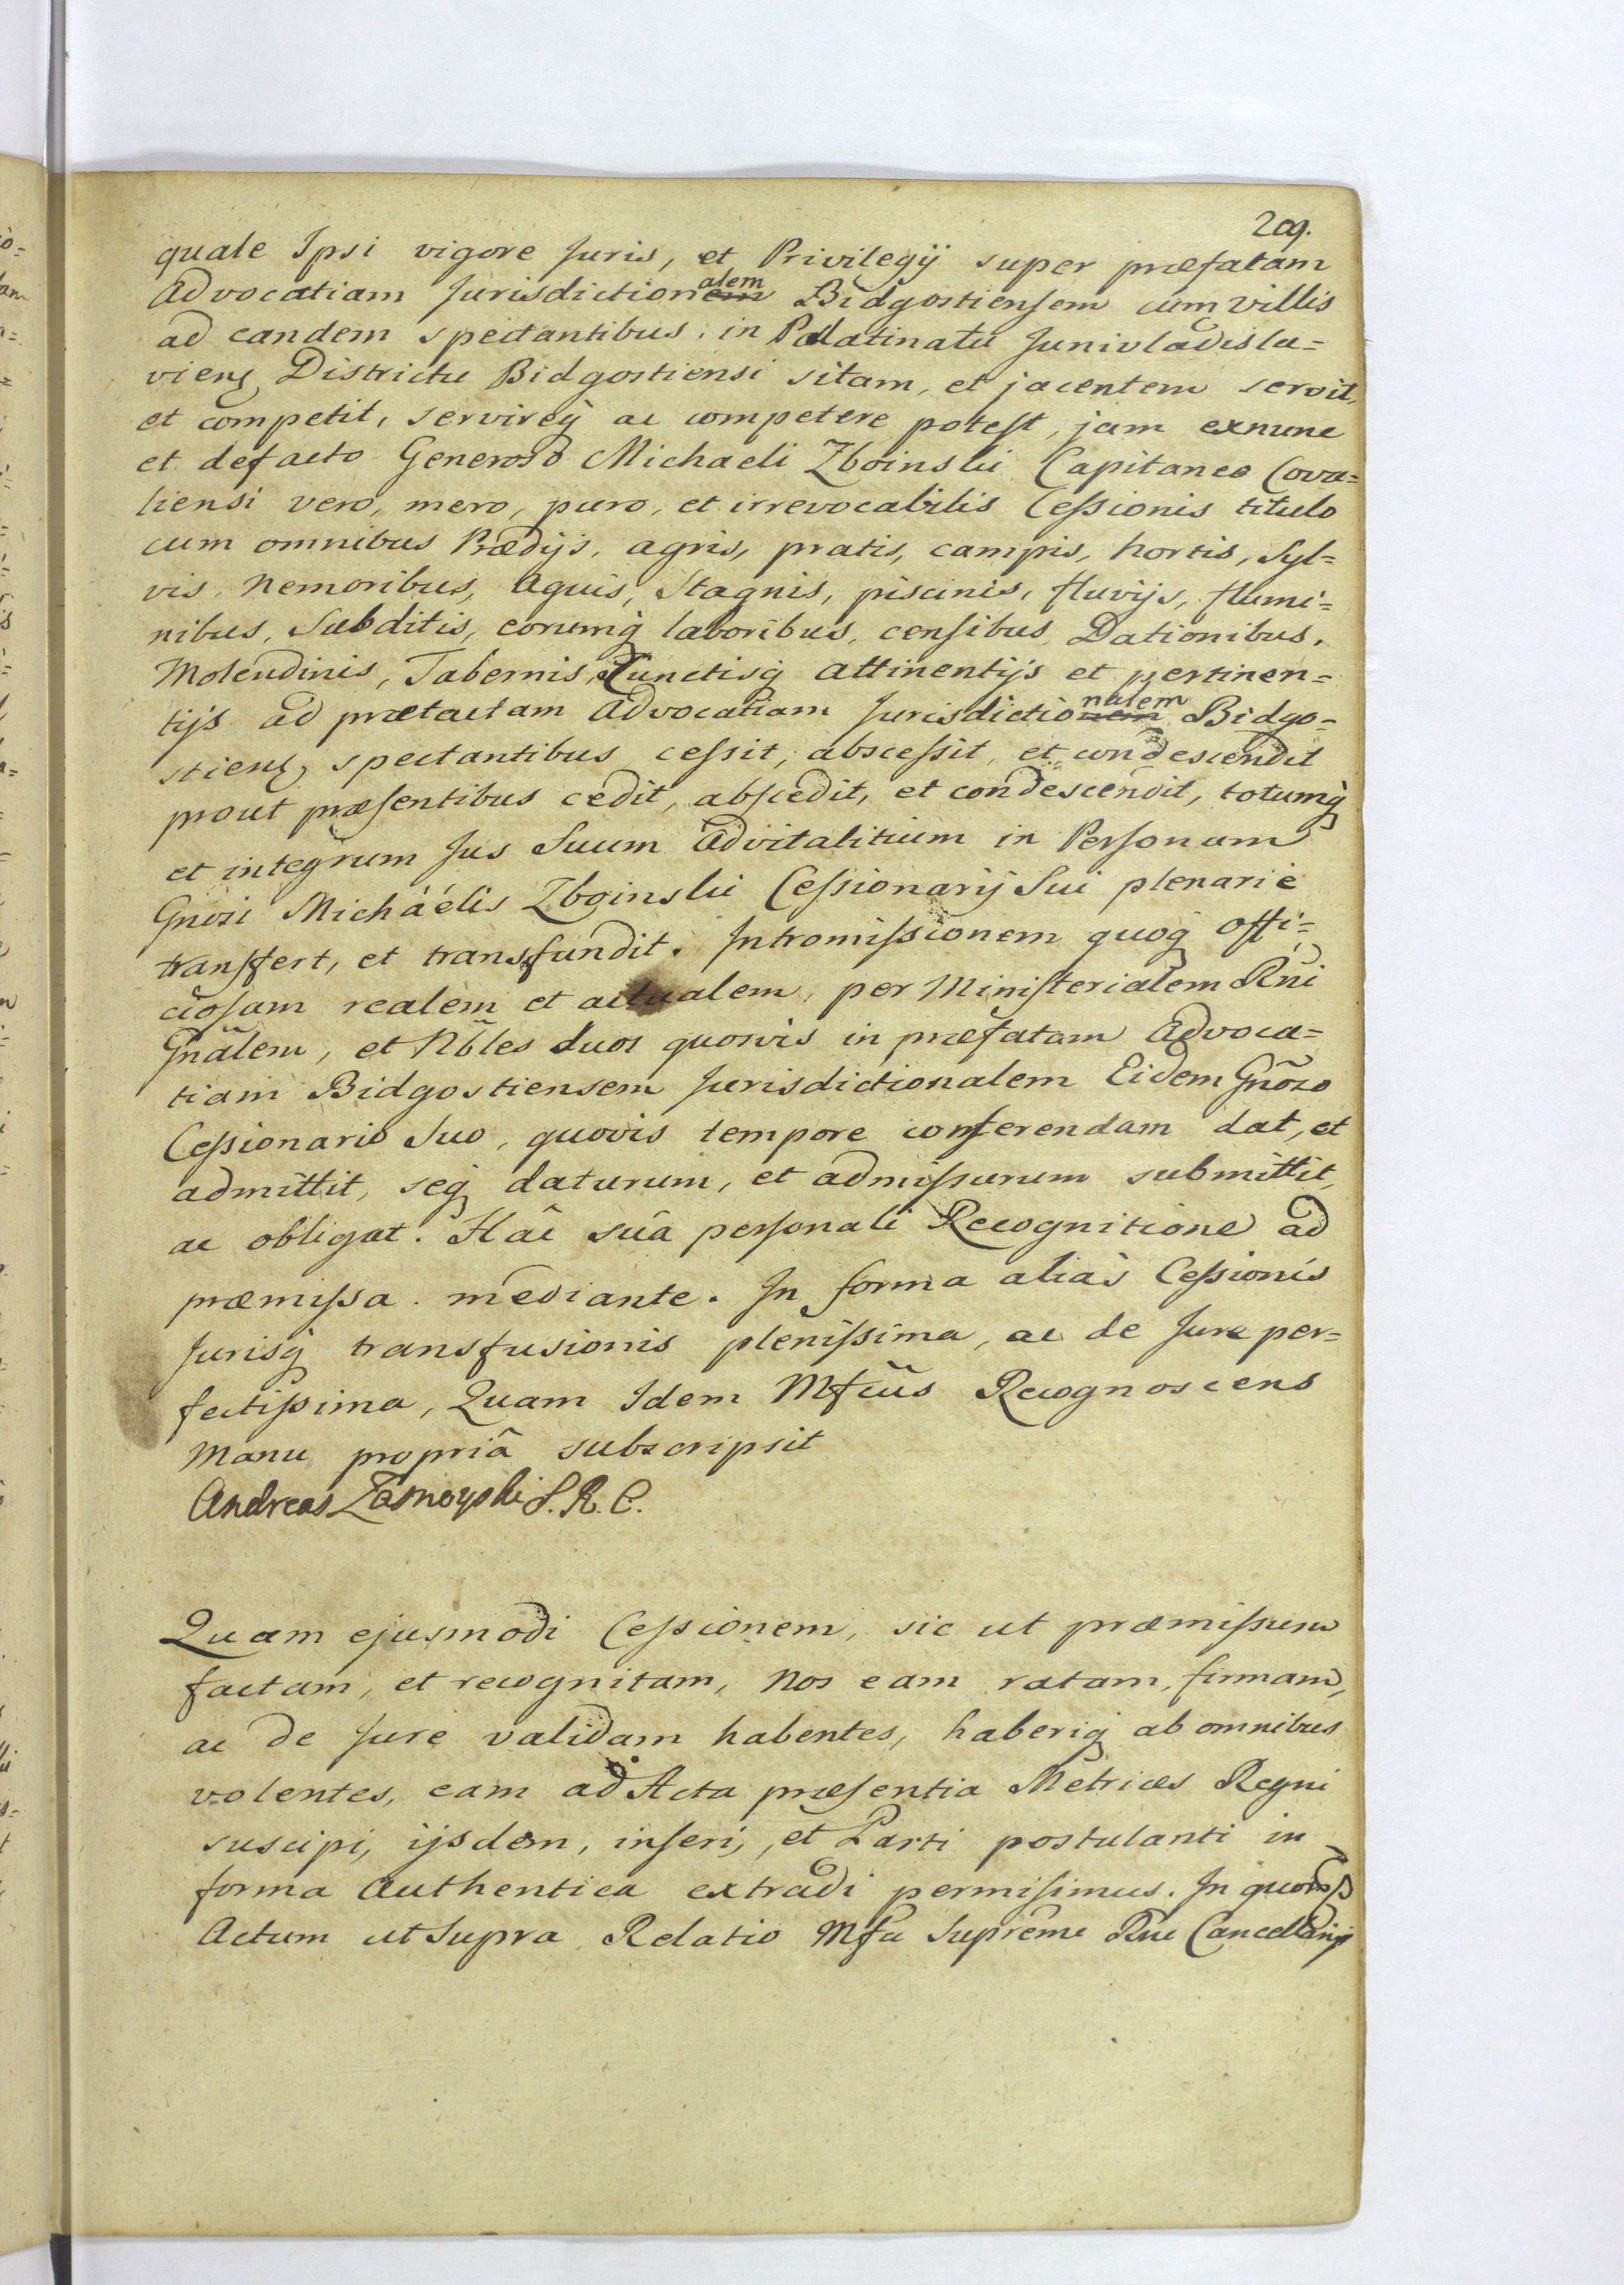 209.
quale Ipsi vigore Juris, et Privilegij super præfatam
Advocatiam Jurisdictionalem Bidgostiensem cum villis
ad eandem spectantibus, in Palatinatu Junivladisla=
viens, Districtu Bidgostiensi sitam, et jacentem servit,
et competit, servireq ac competere potest, jam exnunc
et defacto Generoso Michaeli Zboinski Capitaneo Cova=
liensi vero, mero, puro, et irrevocabilis Cessionis titulo
cum omnibus Prædijs, agris, pratis, campis, hortis, Syl=
vis, Nemoribus, Aquis, Stagnis, piscinis, fluvijs, flumi=
nibus, Subditis, eorumq laboribus, censibus, Dationibus,
Molendinis, Tabernis, Cunctisq attinentijs et pertinen=
tijs ad prætactam Advocatiam Jurisdictionalem Bidgo=
stiens, spectantibus cessit, abscessit, et condescendit
prout præsentibus cedit, abscedit, et condescendit, totumq
et integrum Jus Suum Advitalitium in Personam
Gnosi Micháélis Zboinski Cessionarij Sui plenarie
transfert, et transfundit. Intromissionem quoq offi=
ciosam realem et actualem, per Ministerialem Rñi
Gnãlem, et Nõles duos quosvis in præfatam Advoca=
tiam Bidgostiensem Jurisdictionalem Eidem Gnõso
Cessionario Suo, quovis tempore conferendam dat, et
admittit, seq daturum, et admissurum submittit,
ac obligat. Hâc suâ personali Recognitione ad
præmissa mediante. In forma aliàs Cessionis
Jurisq transfusionis plenissima, ac de Jure per=
fectissima, Quam Idem Mfcus Recognoscens
Manu propriâ subscripsit
Andreas Zamoyski S. R. C.
Quam ejusmodi Cessionem, sic ut præmissum
factam, et recognitam, Nos eam ratam, firmam,
ac de Jure validam habentes, haberiq ab omnibus
volentes, eam ad Acta præsentia Metrices Regni
suscipi, ijsdem, inseri, et Parti postulanti in
forma Authentica extradi permisimus. In quorum
Actum ut Supra Relatio Mfci Supreme Rni Cancellarij